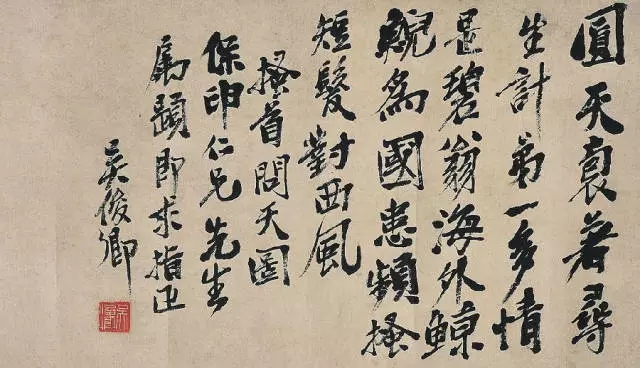 圓天裹著尋
生計第一多情
是碧翁海外鯨
鯢為國患頻搔
短髮對西風
搔首問天圖
保印仁兄先生
属題即求指正
吳俊卿